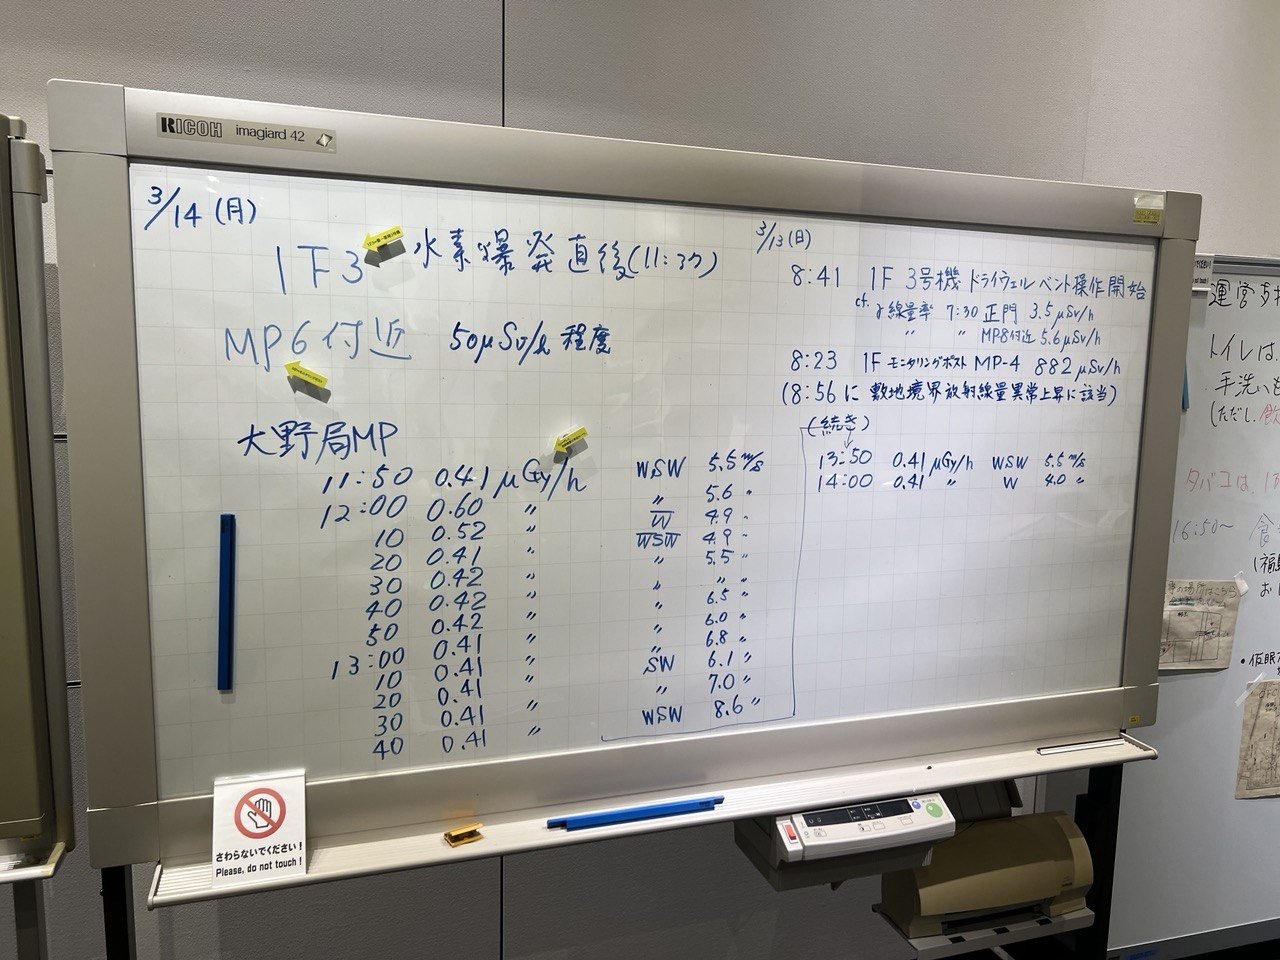 RICOH imagiard 42
3/14 (月)
1F3 水素爆発直後(11:37)
MP6付近 50μSv/h 程度
大野局MP
11:50 0.41 μGy/h WSW 5.5 m/s
12:00 0.60 〃 〃 5.6 〃
10 0.52 〃 W 4.9 〃
20 0.41 〃 WSW 4.9 〃
30 0.42 〃 〃 5.5 〃
40 0.42 〃 〃 〃 〃
50 0.42 〃 〃 6.5 〃
13:00 0.41 〃 〃 6.0 〃
10 0.41 〃 〃 6.8 〃
20 0.41 〃 SW 6.1 〃
30 0.41 〃 〃 7.0 〃
40 0.41 〃 WSW 8.6 〃
3/13 (日)
8:41 1F 3号機 ドライウェル ベント操作開始
cf. γ線量率 7:30 正門 3.5μSv/h
〃 〃 MP8付近 5.6μSv/h
8:23 1F モニタリングポスト MP-4 882μSv/h
(8:56 に 敷地境界放射線量異常上昇に該当)
(続き)
13:50 0.41 μGy/h WSW 5.5 m/s
14:00 0.41 〃 W 4.0 〃
さわらないでください!
Please, do not touch!
運営支
トイレは、
手洗いも
(ただし、飲
タバコは、1
16:50～ 食
(福島
おし
の場所はこちら
・仮眠